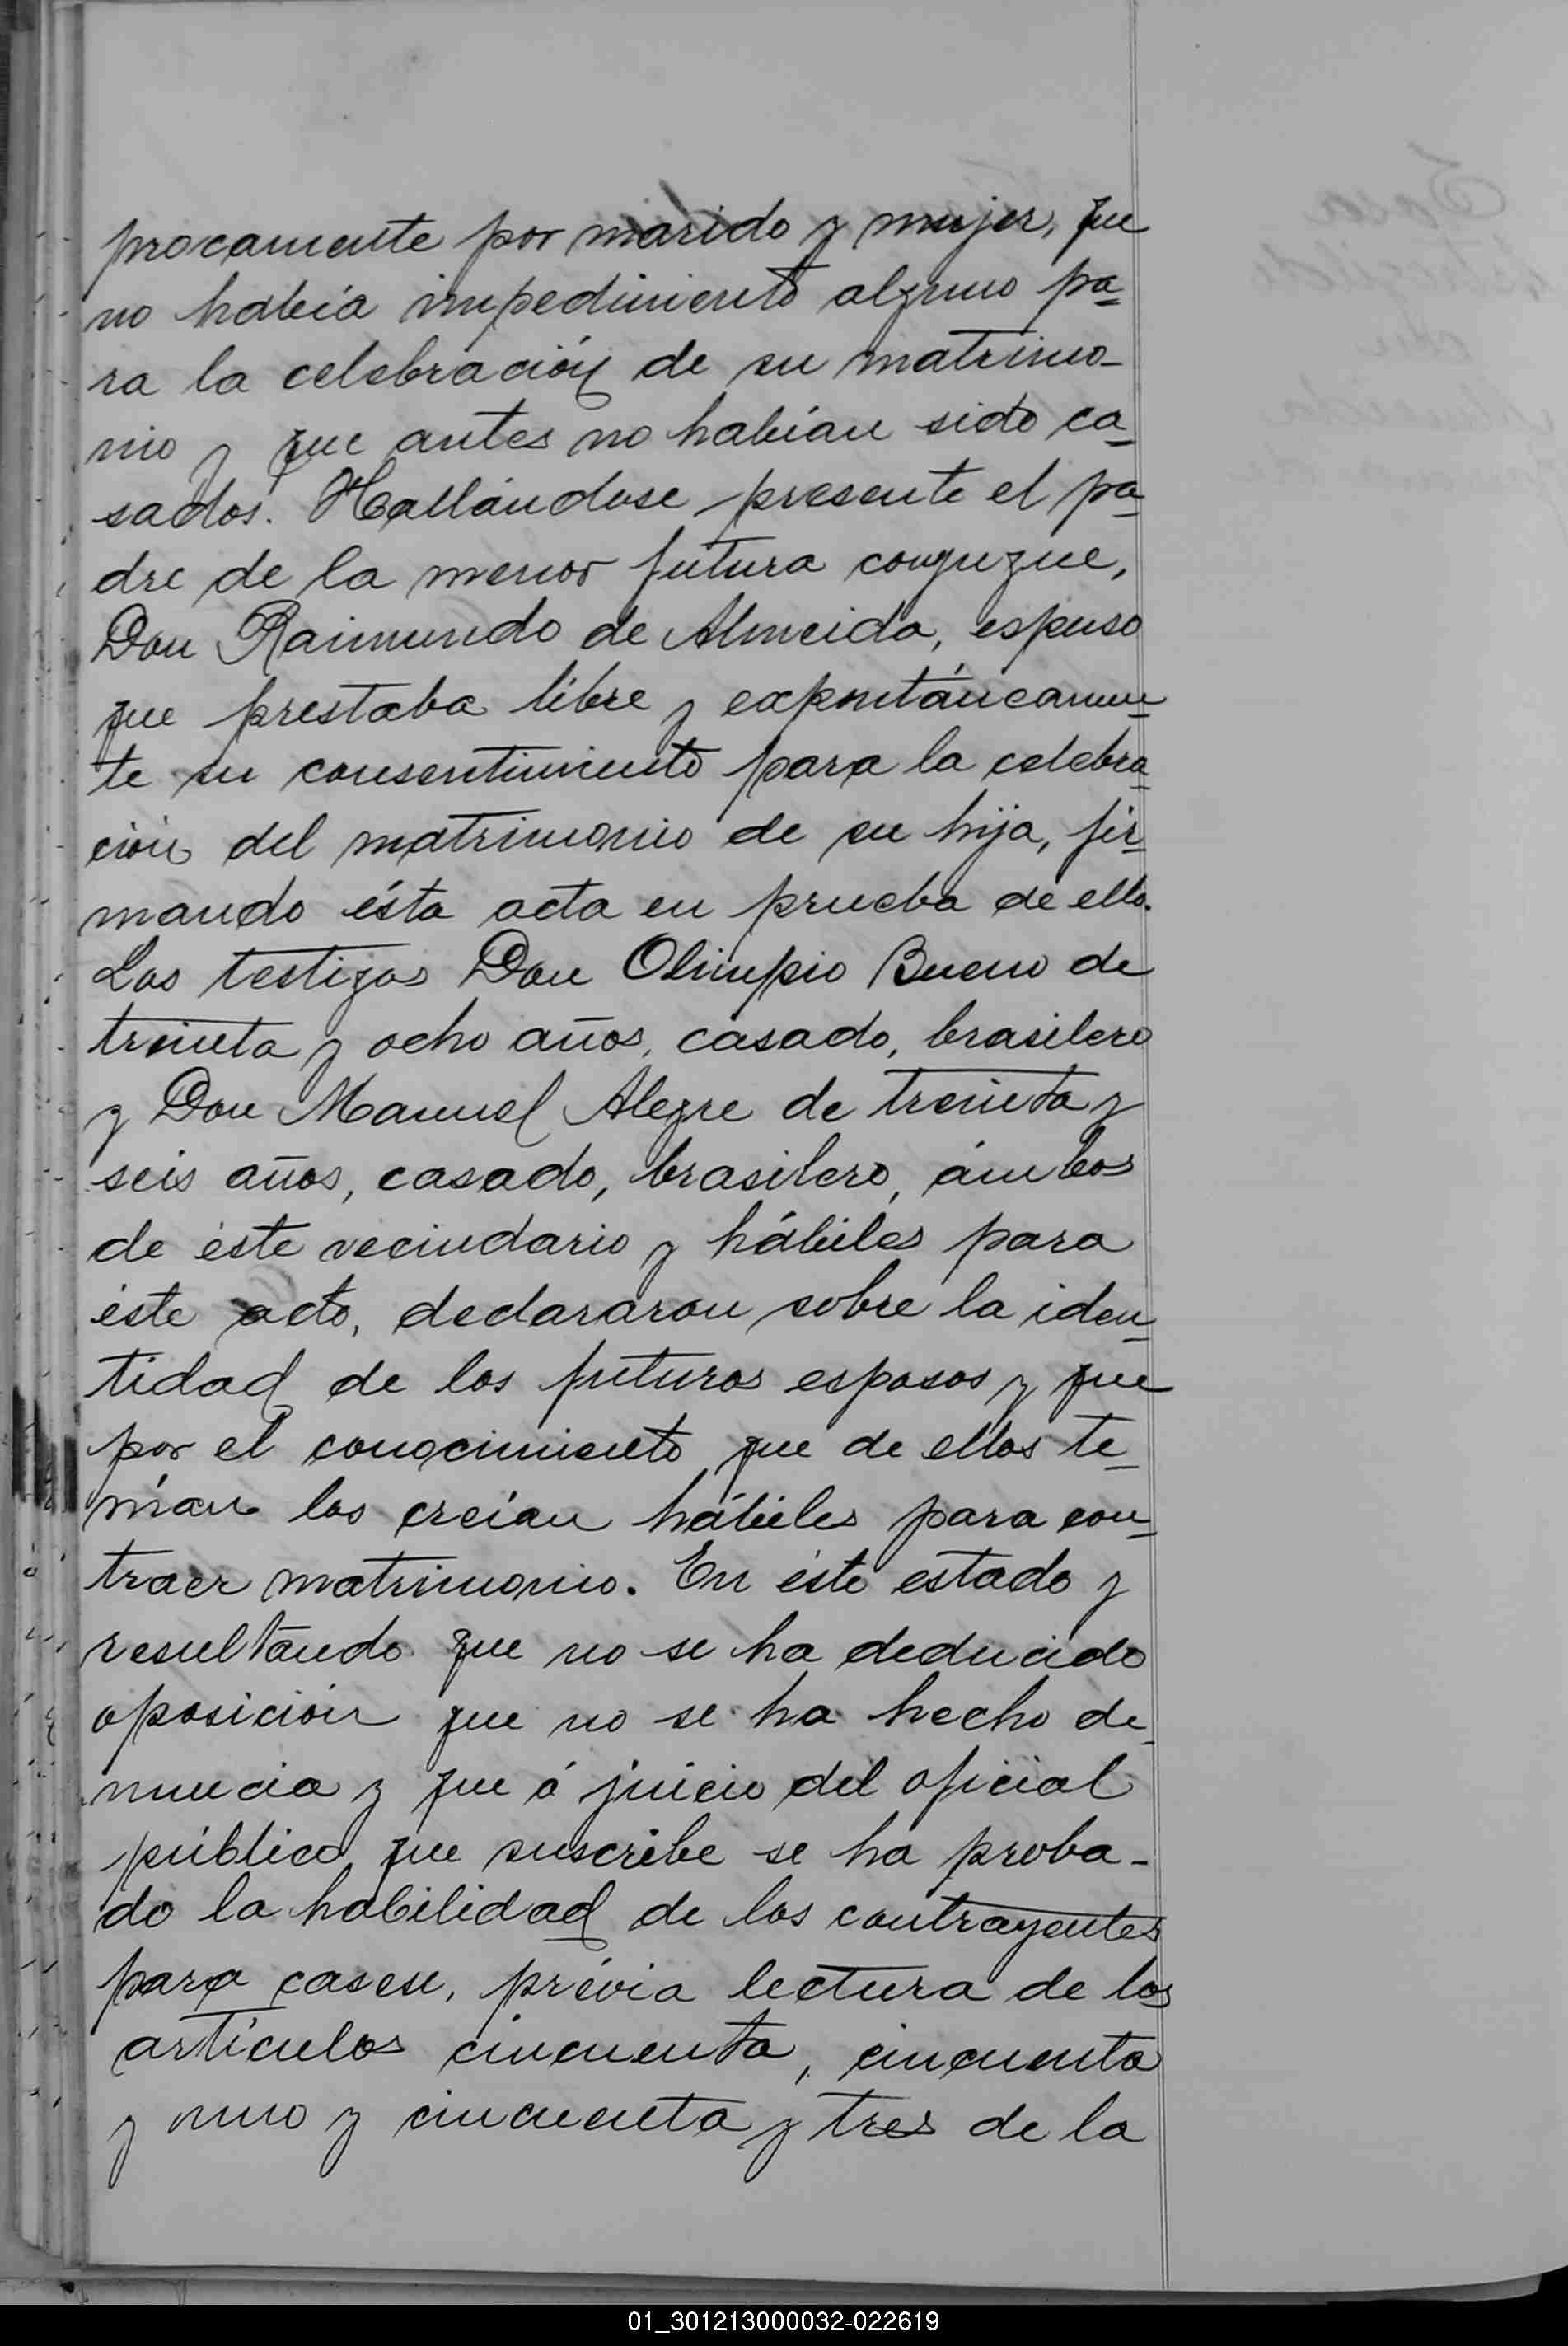 procamente por marido y mujer, que
no había impedimiento alguno pa-
ra la celebración de su matrimo-
nio y que antes no habían sido ca-
sados. Hallándose presente el pa-
dre de la menor futura conyuzue,
Don Raimundo de Almeida, espuso
que prestaba libre y expontáneamen-
te su consentimiento para la celebra-
ción del matrimonio de su hija, fir-
mando ésta acta en prueba de ello.
Los testigos Don Olimpio Bueno de
treinta y ocho años, casado, brasilero
y Don Manuel Alegre de treinta y
seis años, casado, brasilero, ámbos
de éste vecindario y hábiles para
éste acto, declararon sobre la iden-
tidad de los futuros esposos y que
por el conocimiento que de ellos te-
nían los creían hábiles para con-
traer matrimonio. En éste estado y
resultando que no se ha deducido
oposición que no se ha hecho de-
nuncia y que á juicio del oficial
público que suscribe se ha proba-
do la habilidad de los contrayentes
para casese, prévia lectura de los
artículos cincuenta, cincuenta
y uno y cincuenta y tres de la
01_301213000032-022619